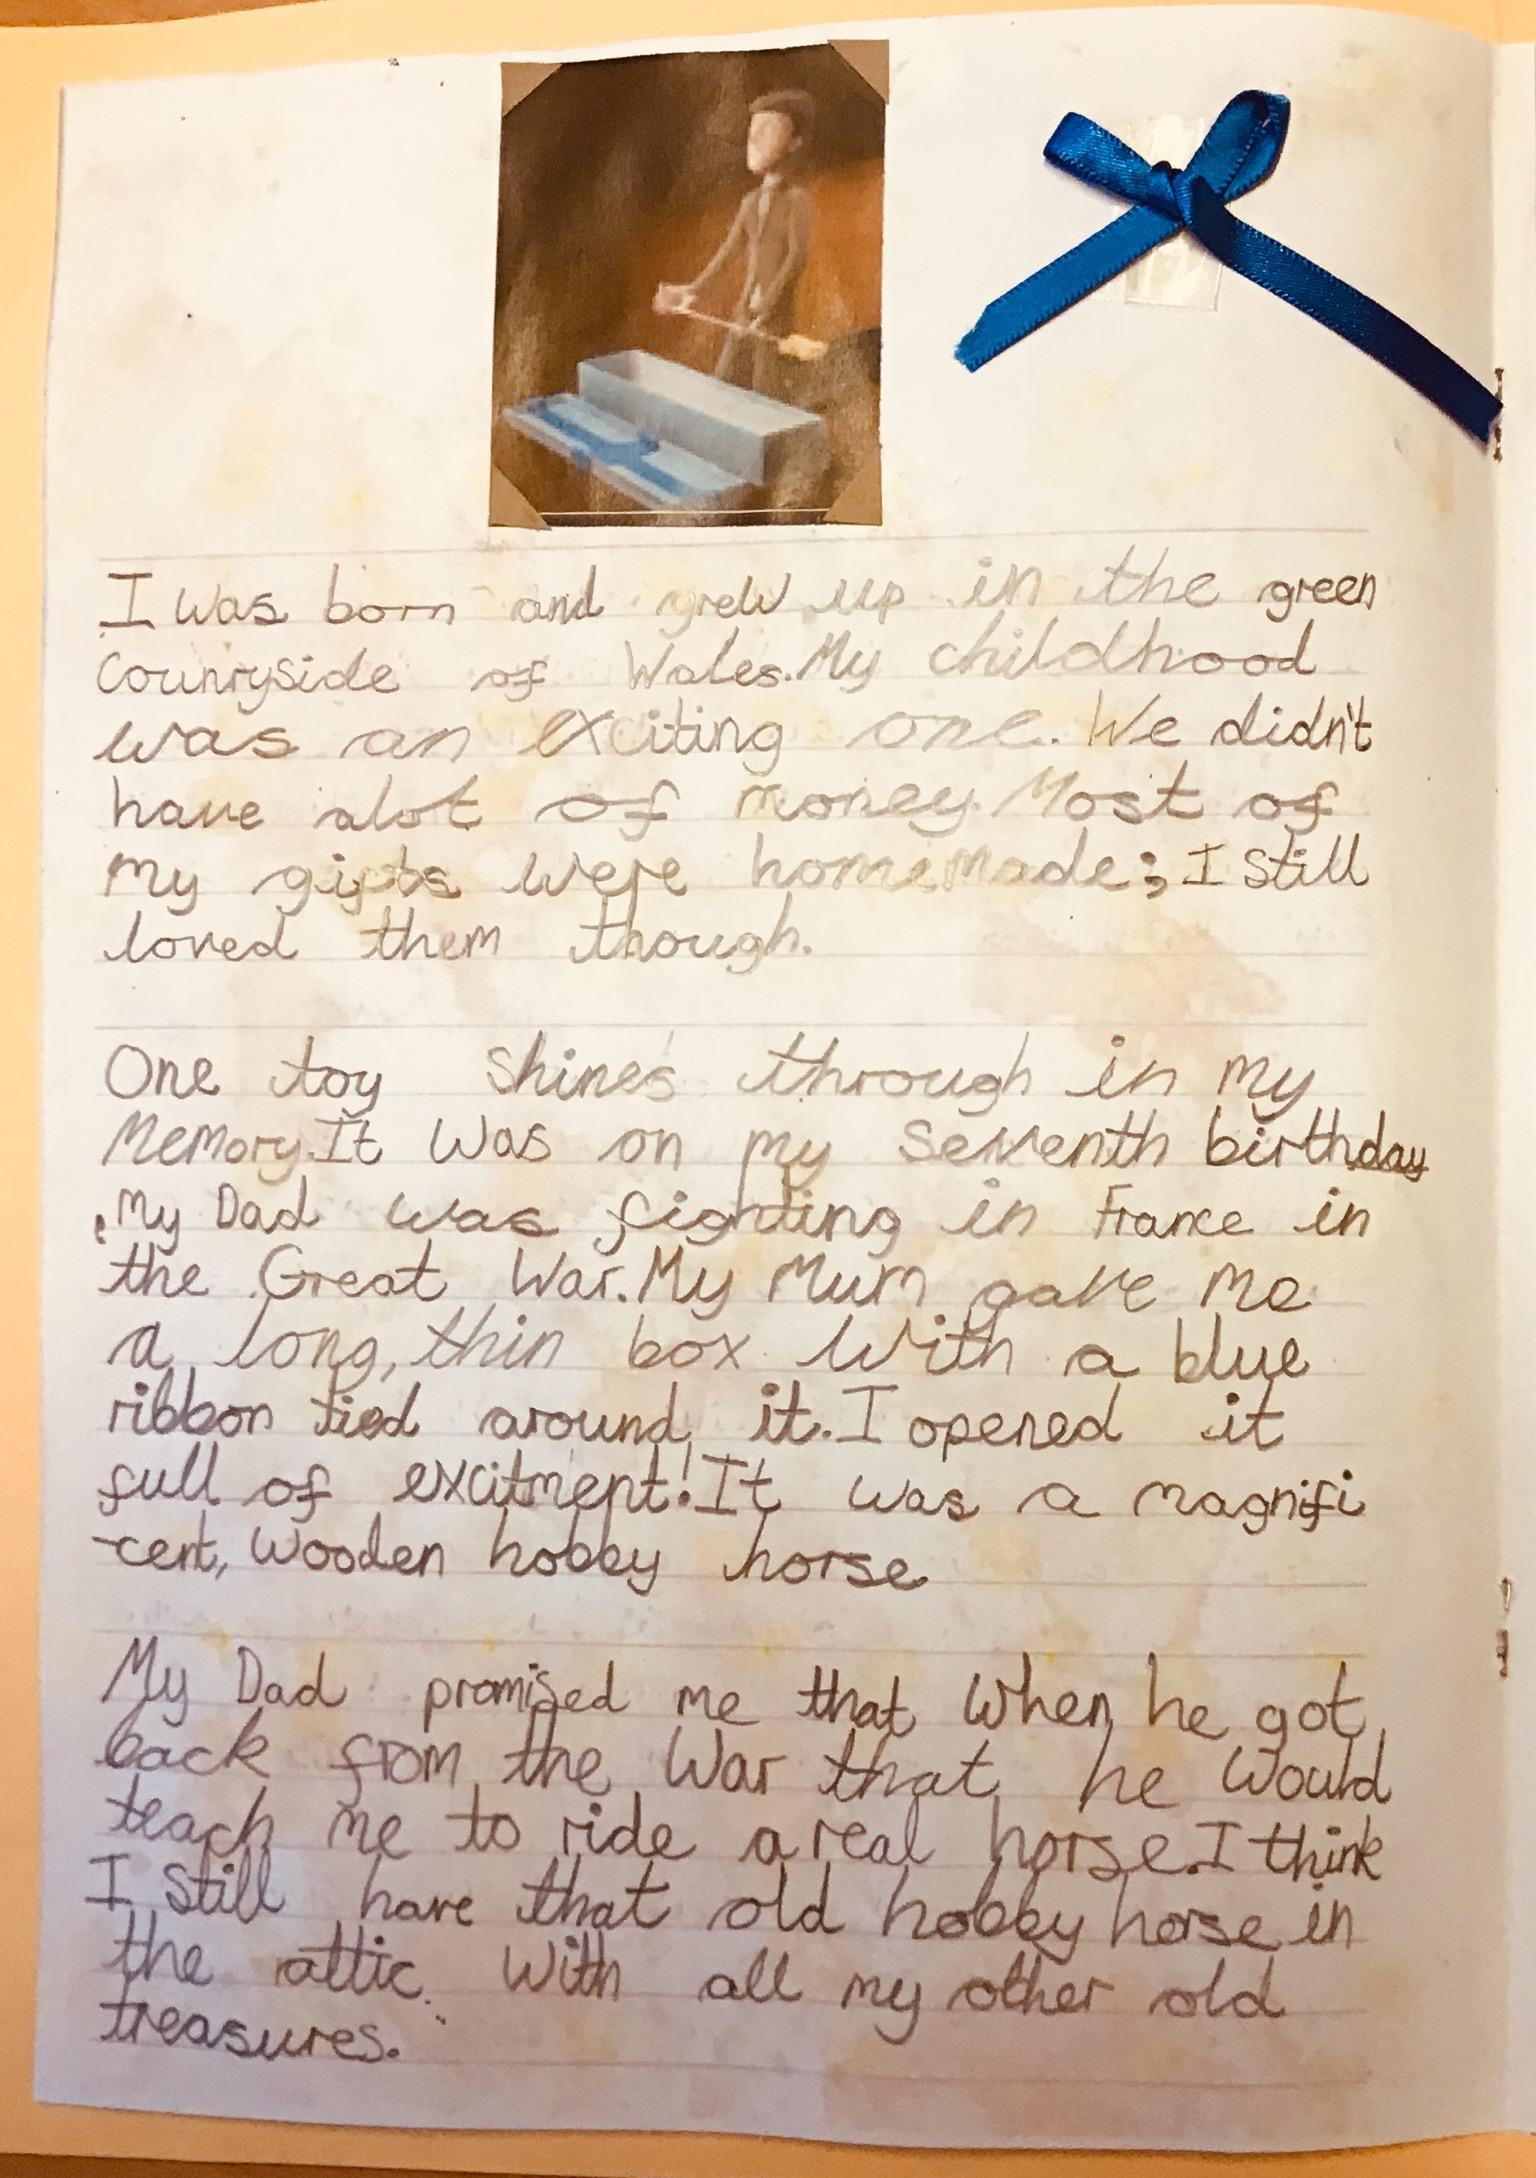 I was born and grew up in the green
Counryside of Wales. My childhood
was an exciting one. We didn't
have alot of money. Most of
my gifts were homemade; I still
loved them though.
One toy shines through in my
Memory. It was on my seventh birthday
. My Dad was fighting in France in
the Great War. My Mum gave me
a long, thin box with a blue
ribbon tied around it. I opened it
full of excitment! It was a magnifi
-cent, wooden hobby horse
My Dad promised me that when he got
back from the war that he would
teach me to ride a real horse. I think
I still have that old hobby horse in
the attic. With all my other old
treasures.